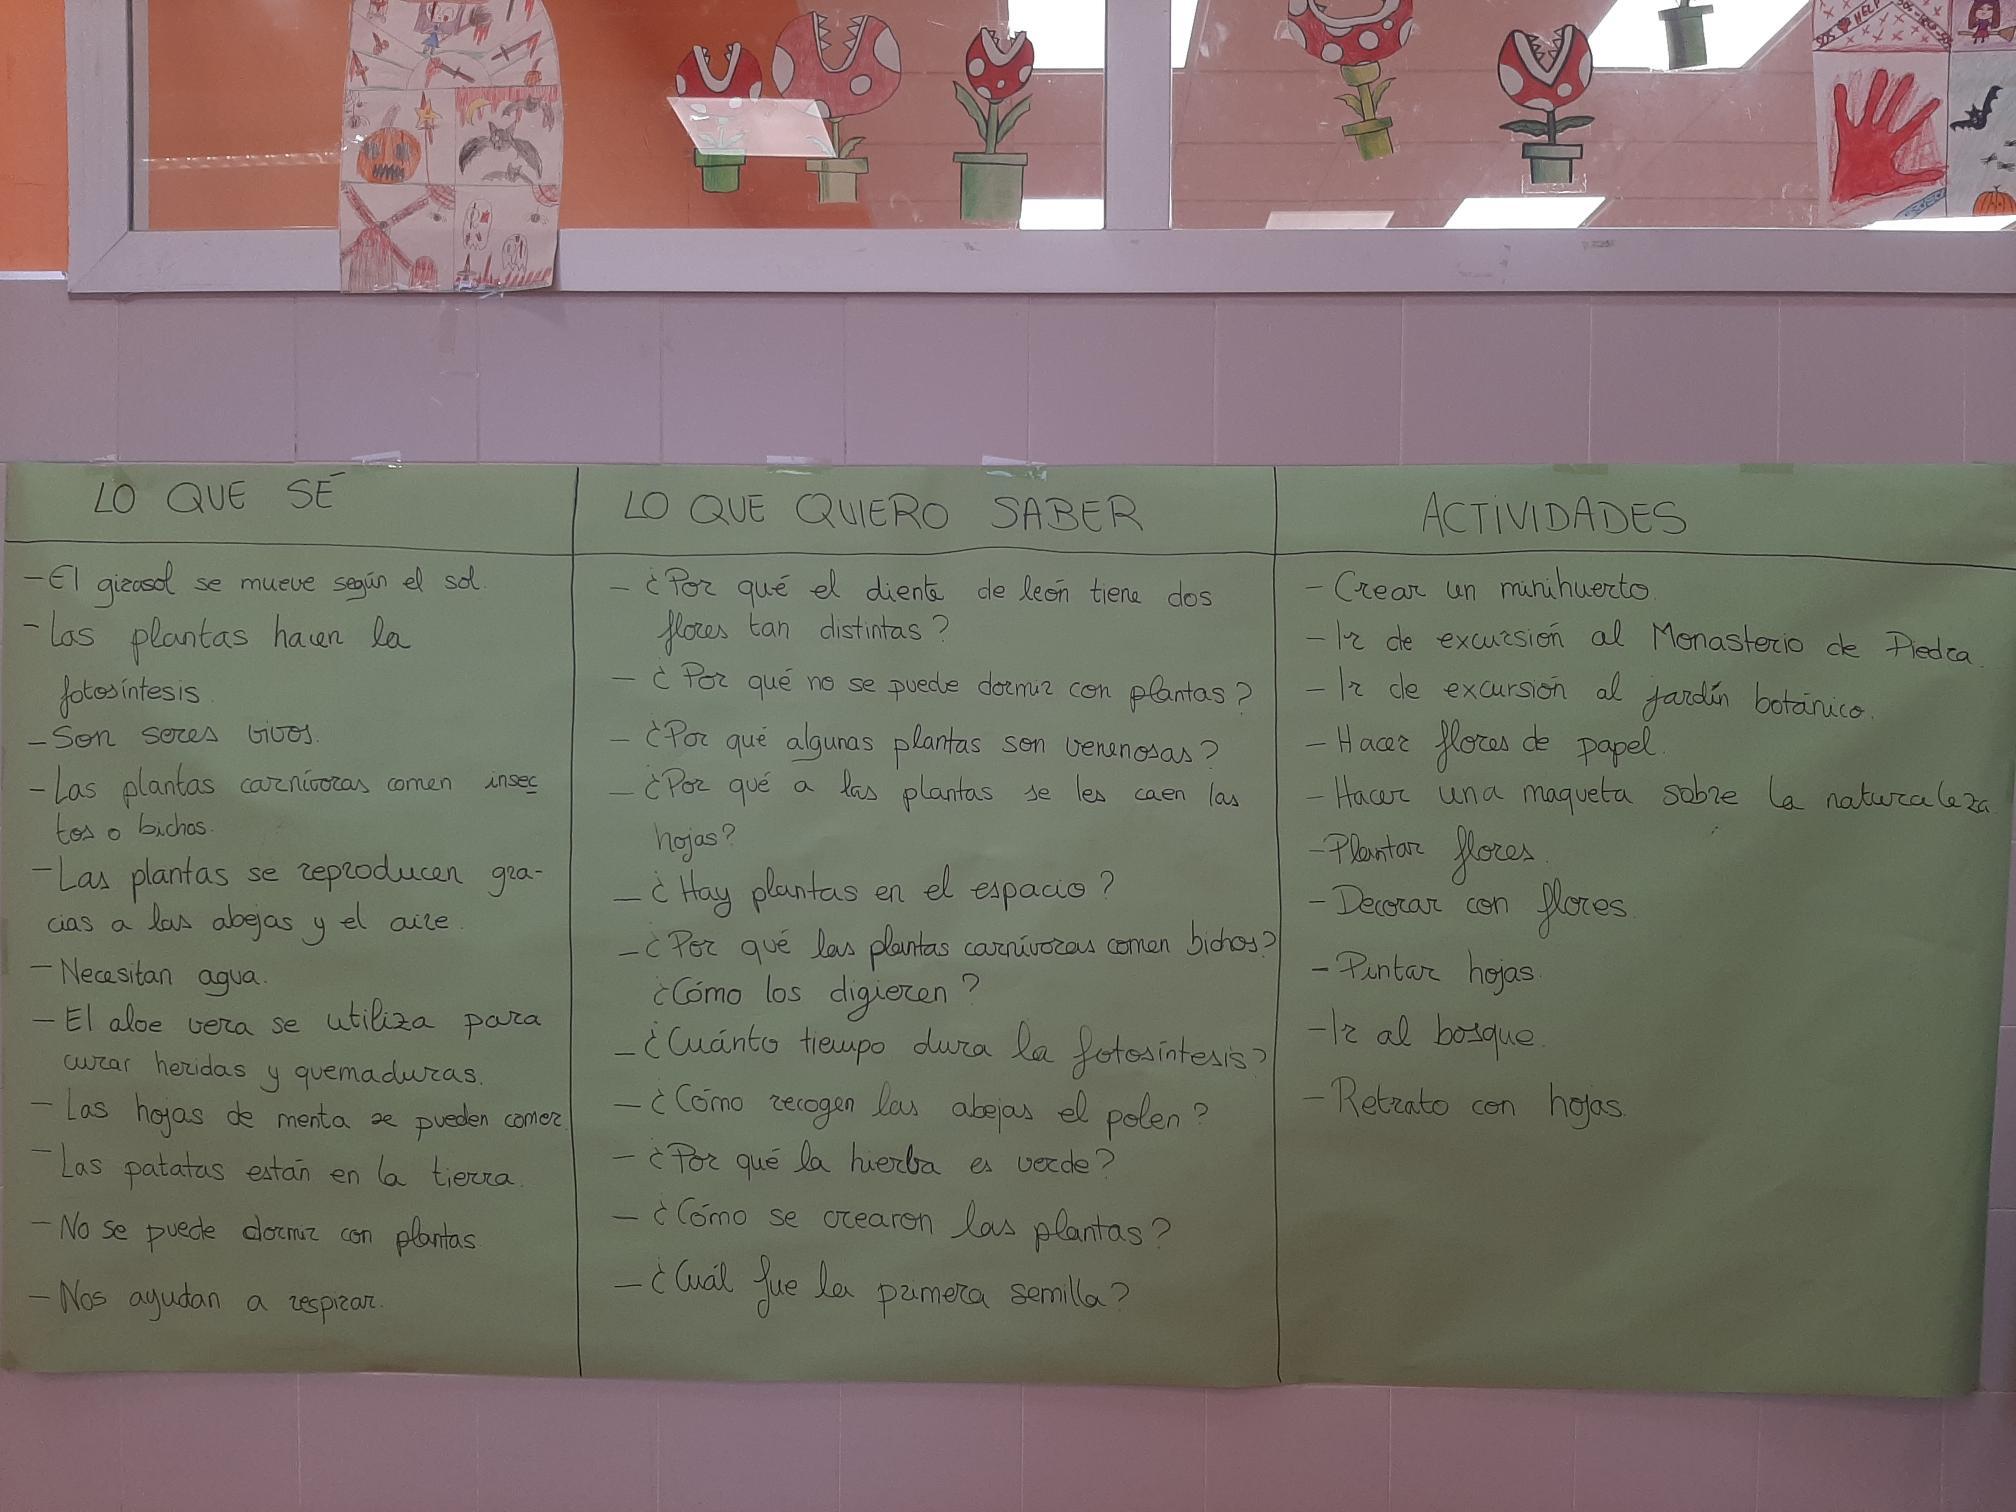 HELP
LO QUE SÉ
- El girasol se mueve según el sol.
- Las plantas hacen la
fotosíntesis.
- Son seres vivos.
- Las plantas carnívoras comen insec
tos o bichos.
- Las plantas se reproducen gra-
cias a las abejas y el aire.
- Necesitan agua.
- El aloe vera se utiliza para
curar heridas y quemaduras.
- Las hojas de menta se pueden comer.
- Las patatas están en la tierra.
- No se puede dormir con plantas
- Nos ayudan a respirar.
LO QUE QUIERO SABER
- ¿Por qué el diente de león tiene dos
flores tan distintas?
- ¿Por qué no se puede dormir con plantas?
- ¿Por qué algunas plantas son venenosas?
- ¿Por qué a las plantas se les caen las
hojas?
- ¿Hay plantas en el espacio?
- ¿Por qué las plantas carnívoras comen bichos?
¿Cómo los digieren?
- ¿Cuánto tiempo dura la fotosíntesis?
- ¿Cómo recogen las abejas el polen?
- ¿Por qué la hierba es verde?
- ¿Cómo se crearon las plantas?
- ¿Cuál fue la primera semilla?
ACTIVIDADES
- Crear un minihuerto.
- Ir de excursión al Monasterio de Piedra.
- Ir de excursión al jardín botánico.
- Hacer flores de papel.
- Hacer una maqueta sobre la naturaleza.
- Plantar flores.
- Decorar con flores.
- Pintar hojas.
- Ir al bosque.
- Retrato con hojas.